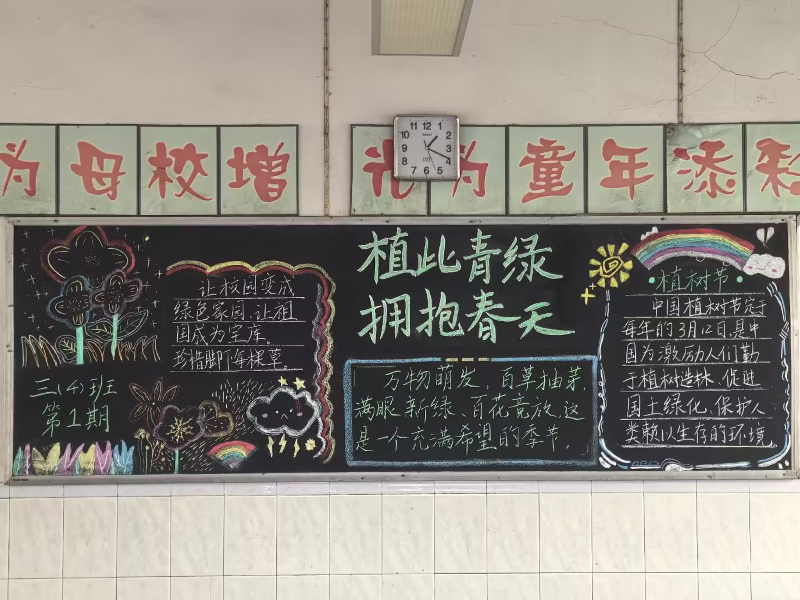 为母校增光为童年添彩
植此青绿
拥抱春天
让校园变成
绿色家园.让祖
国成为宝库.
珍惜脚下每棵草.
三(4)班
第1期
万物萌发,百草抽芽,
满眼新绿、百花竞放.这
是一个充满希望的季节.
·植树节·
中国植树节定于
每年的3月12日,是中
国为激励人们勤
于植树造林、促进
国土绿化、保护人
类赖以生存的环境.
12
1
2
3
4
5
6
7
8
9
10
11